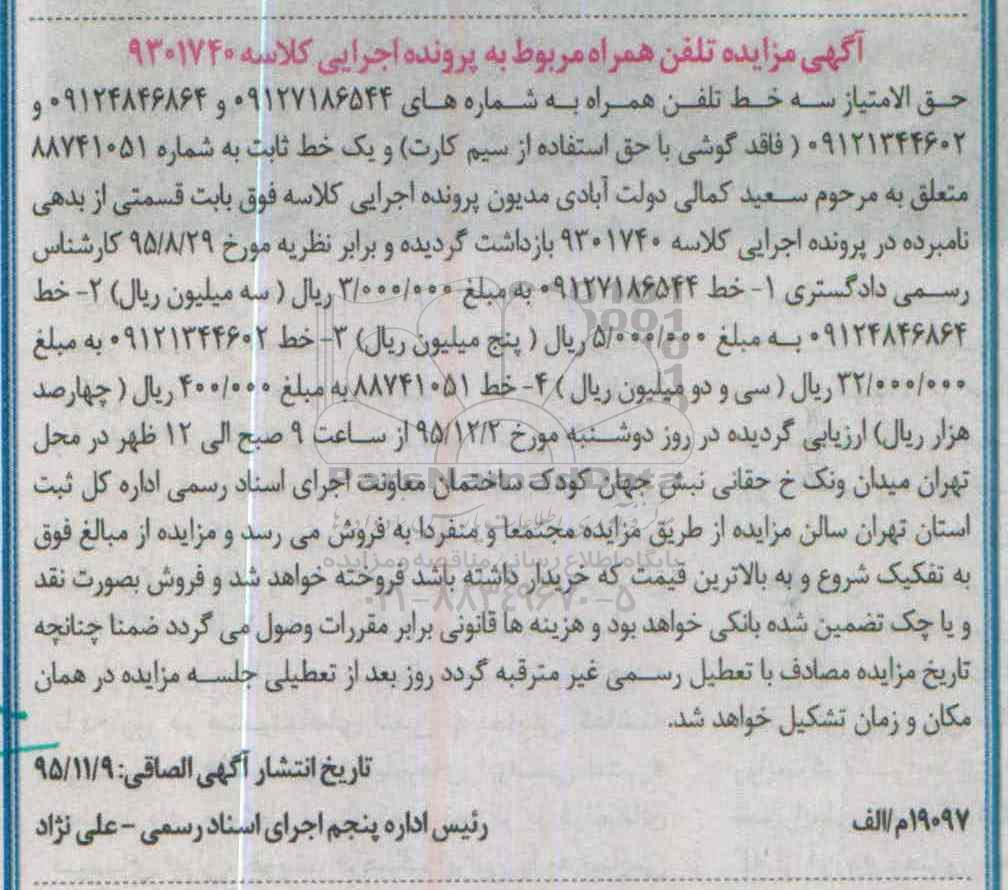 آگهی مزایده تلفن همراه مربوط به پرونده اجرایی کلاسه ۹۳۰۱۷۴۰
حق الامتیاز سه خط تلفن همراه به شماره های ۰۹۱۲۷۱۸۶۵۴۴ و ۰۹۱۲۴۸۴۶۸۶۴ و
۰۹۱۲۱۳۴۴۶۰۲ ( فاقد گوشی با حق استفاده از سیم کارت) و یک خط ثابت به شماره ۸۸۷۴۱۰۵۱
متعلق به مرحوم سعید کمالی دولت آبادی مدیون پرونده اجرایی کلاسه فوق بابت قسمتی از بدهی
نامبرده در پرونده اجرایی کلاسه ۹۳۰۱۷۴۰ بازداشت گردیده و برابر نظریه مورخ ۹۵/۸/۲۹ کارشناس
رسمی دادگستری ۱- خط ۰۹۱۲۷۱۸۶۵۴۴ به مبلغ ۳/۰۰۰/۰۰۰ ریال ( سه میلیون ریال) ۲- خط
۰۹۱۲۴۸۴۶۸۶۴ به مبلغ ۵/۰۰۰/۰۰۰ ریال ( پنج میلیون ریال) ۳- خط ۰۹۱۲۱۳۴۴۶۰۲ به مبلغ
۳۲/۰۰۰/۰۰۰ ریال ( سی و دو میلیون ریال ) ۴- خط ۸۸۷۴۱۰۵۱ به مبلغ ۴۰۰/۰۰۰ ریال ( چهارصد
هزار ریال) ارزیابی گردیده در روز دوشنبه مورخ ۹۵/۱۲/۲ از ساعت ۹ صبح الی ۱۲ ظهر در محل
تهران میدان ونک خ حقانی نبش جهان کودک ساختمان معاونت اجرای اسناد رسمی اداره کل ثبت
استان تهران سالن مزایده از طریق مزایده مجتمعا و منفردا به فروش می رسد و مزایده از مبالغ فوق
به تفکیک شروع و به بالاترین قیمت که خریدار داشته باشد فروخته خواهد شد و فروش بصورت نقد
و یا چک تضمین شده بانکی خواهد بود و هزینه ها قانونی برابر مقررات وصول می گردد ضمنا چنانچه
تاریخ مزایده مصادف با تعطیل رسمی غیر مترقبه گردد روز بعد از تعطیلی جلسه مزایده در همان
مکان و زمان تشکیل خواهد شد.
تاریخ انتشار آگهی الصاقی: ۹۵/۱۱/۹
۱۹۰۹۷م/الف
رئیس اداره پنجم اجرای اسناد رسمی - علی نژاد
ParsNamadData
پایگاه اطلاع رسانی مناقصه و مزایده
۰۲۱-۸۸۳۴۹۶۷۰-۵